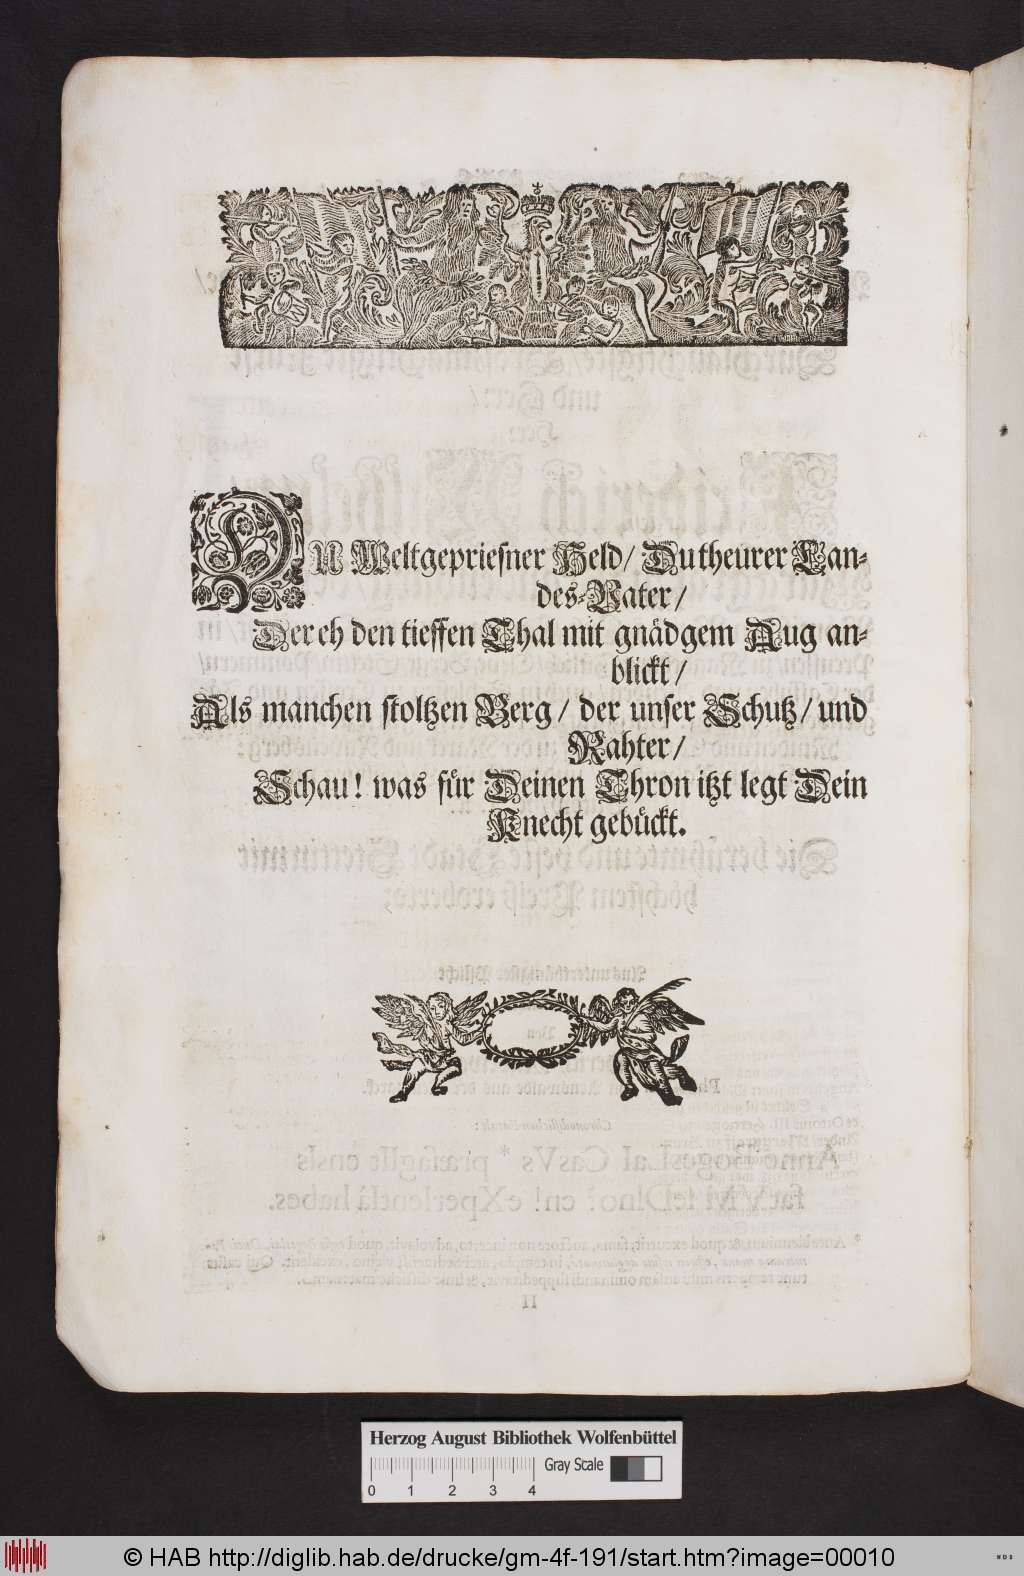 DU Weltgepriesner Held/ Du theurer Lan-
des-Vater/
Der eh den tieffen Thal mit gnädgem Aug an-
blickt/
Als manchen stoltzen Berg/ der unser Schutz/ und
Rahter/
Schau! was für Deinen Thron itzt legt Dein
Knecht gebückt.
Herzog August Bibliothek Wolfenbüttel
Gray Scale
0 1 2 3 4
© HAB http://diglib.hab.de/drucke/gm-4f-191/start.htm?image=00010